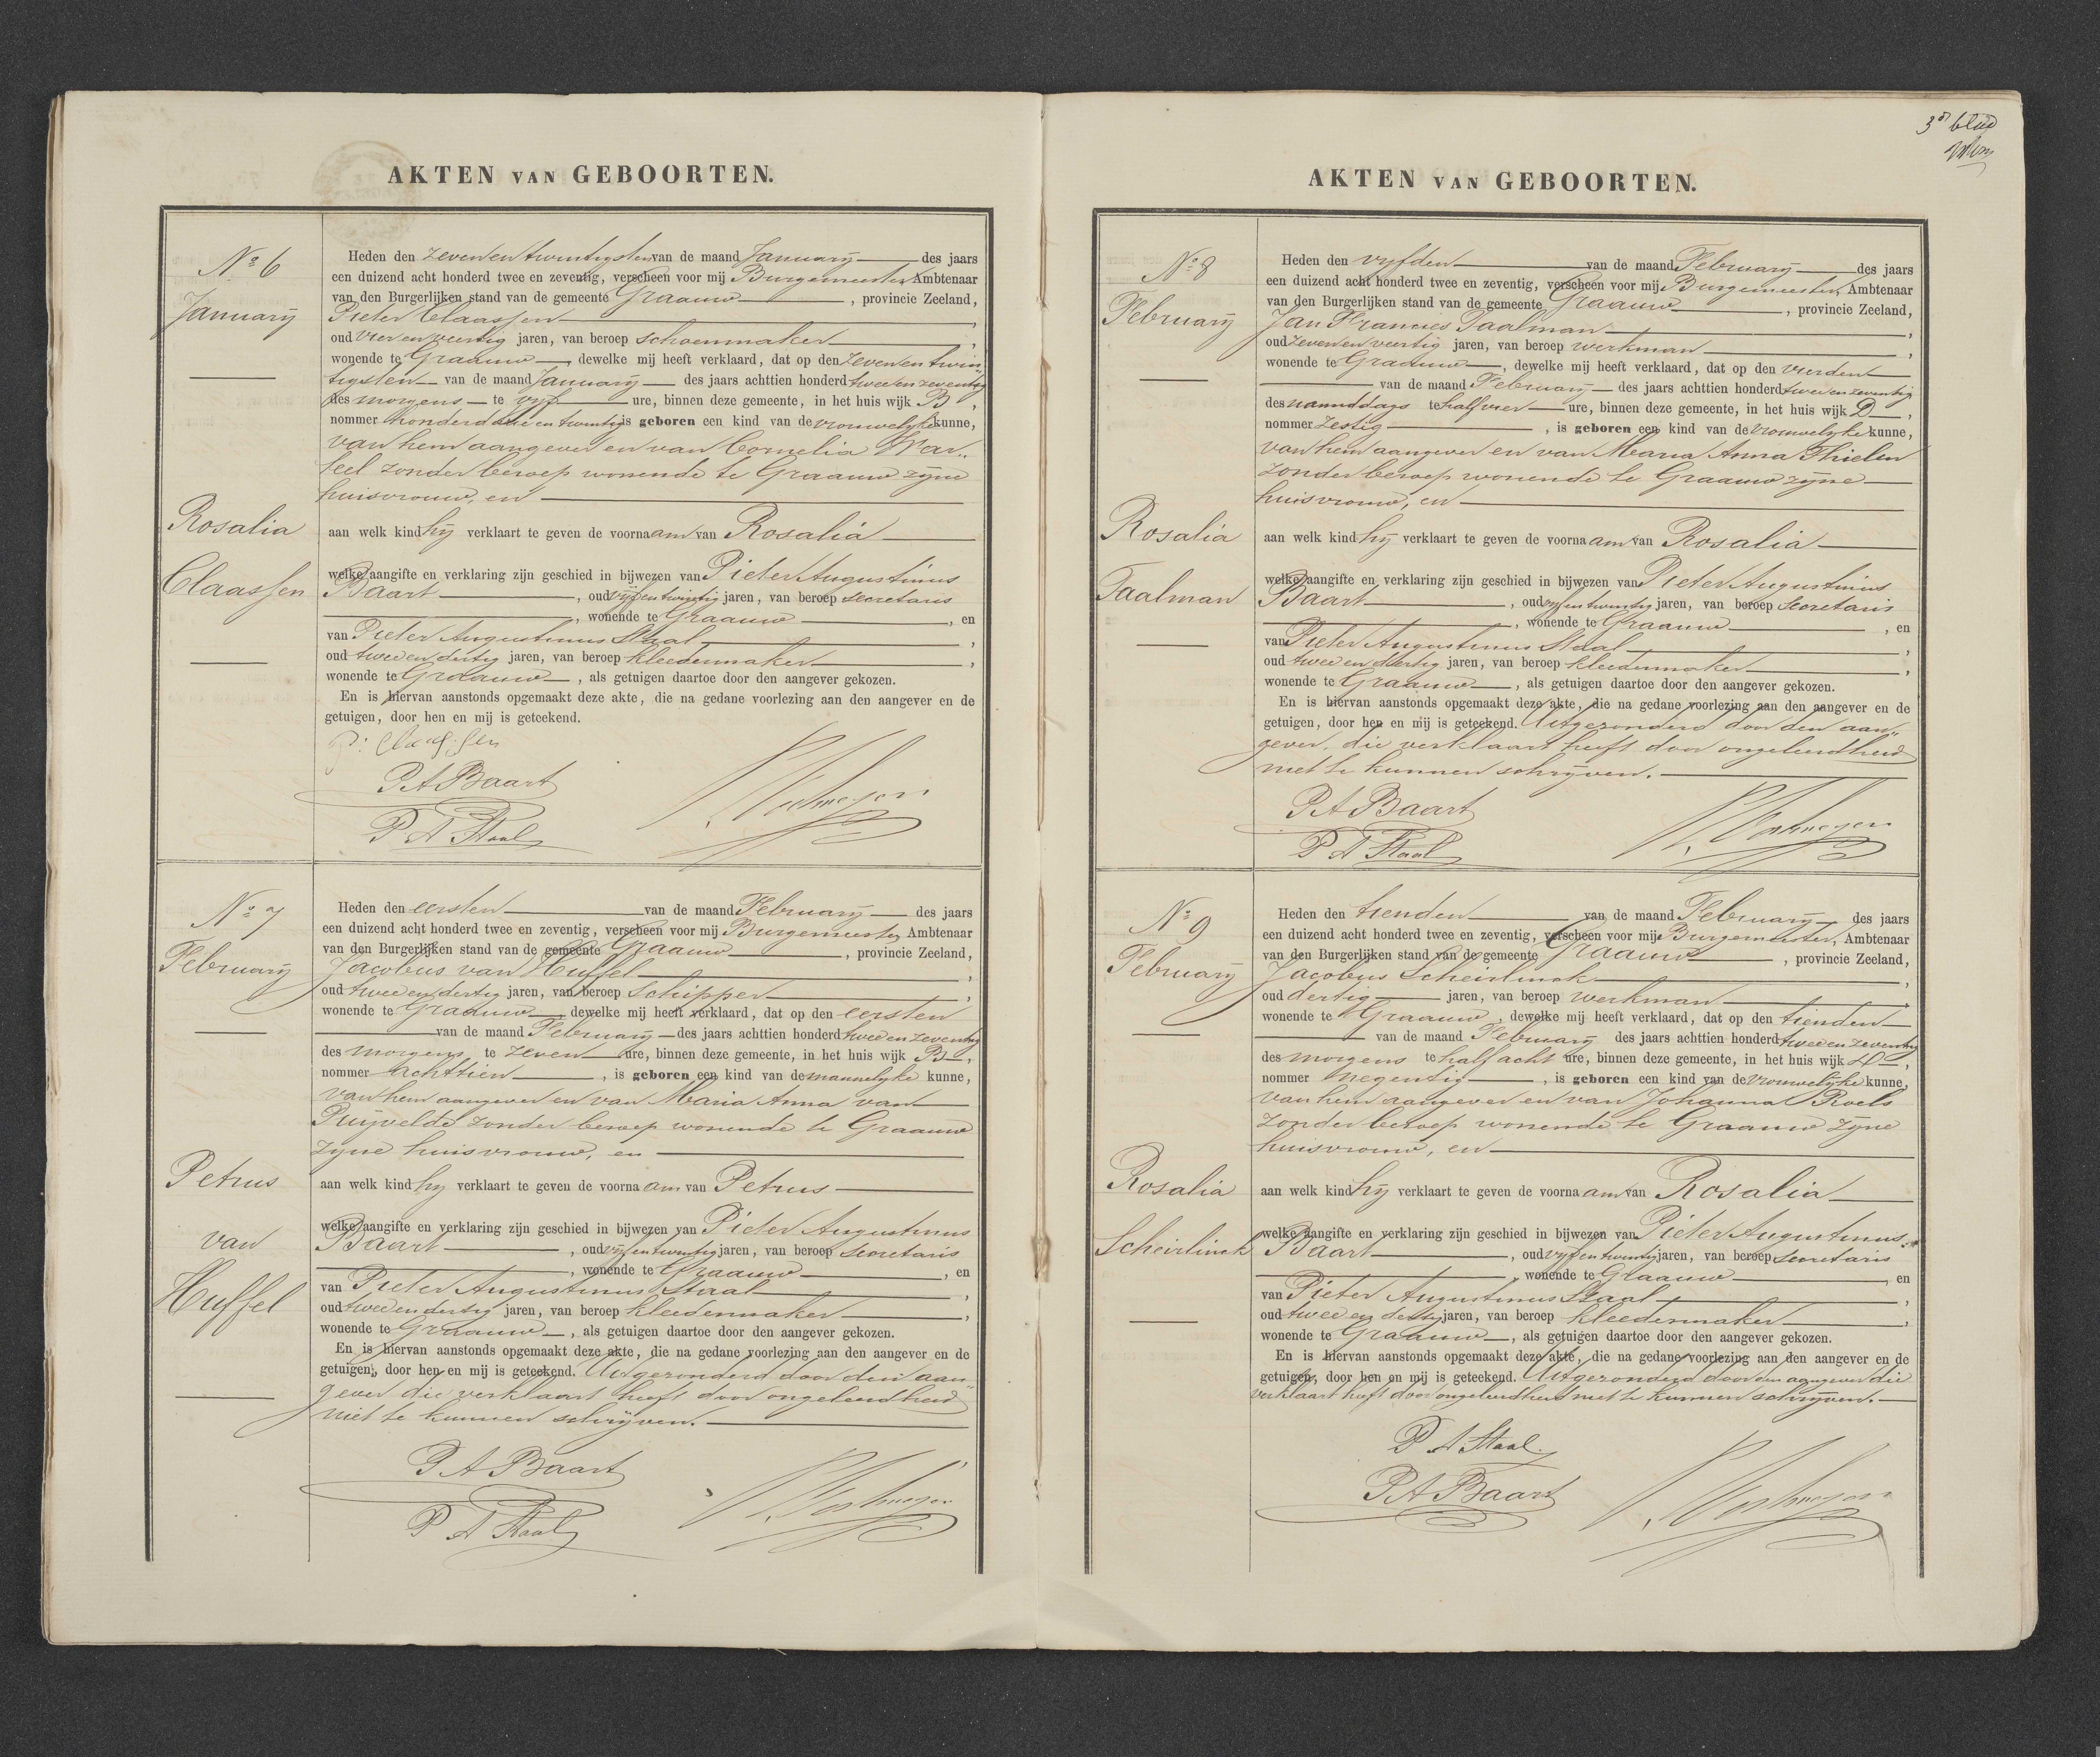 AKTEN VAN GEBOORTEN.
No 6
January
Rosalia
Claassen
Heden den zevenentwintigsten van de maand January des jaars
een duizend acht honderd twee en zeventig, verscheen voor mij Burgemeester Ambtenaar
van den Burgerlijken stand van de gemeente Graauw, provincie Zeeland,
Pieter Claassen,
oud vierenveertig jaren, van beroep schoenmaker,
wonende te Graauw, dewelke mij heeft verklaard, dat op den zevenentwin„
tigsten van de maand January des jaars achttien honderd tweeenzeventig
des morgens te vyf ure, binnen deze gemeente, in het huis wijk B,
nommer honderd en twintig is geboren een kind van de vrouwelyke kunne,
van hem aangever en van Cornelia
zonder beroep wonende te Graauw zyne
huisvrouw, en
aan welk kind hy verklaart te geven de voornaam van Rosalia
welke aangifte en verklaring zijn geschied in bijwezen van Pieter Augustinus
Baart, oud vyfentwintig jaren, van beroep secretaris
, wonende te Graauw, en
van Pieter Augustinus Staal,
oud tweeendertig jaren, van beroep kleedermaker,
wonende te Graauw, als getuigen daartoe door den aangever gekozen.
En is hiervan aanstonds opgemaakt deze akte, die na gedane voorlezing aan den aangever en de
getuigen, door hen en mij is geteekend.
P: Claassen
PA Baart
P A Staal
No 7
February
Petrus
van
Huffel
Heden den eersten van de maand February des jaars
een duizend acht honderd twee en zeventig, verscheen voor mij Burgemeester Ambtenaar
van den Burgerlijken stand van de gemeente Graauw, provincie Zeeland,
Jacobus van Huffel,
oud tweeendertig jaren, van beroep Schipper,
wonende te Graauw dewelke mij heeft verklaard, dat op den eersten
van de maand February des jaars achttien honderd tweeenzeventig
des morgens te zeven ure, binnen deze gemeente, in het huis wijk B,
nommer achttien, is geboren een kind van de mannelyke kunne,
van hem aangever en van Maria Anna van
Puijvelde zonder beroep wonende te Graauw
zyne huisvrouw, en
aan welk kind hy verklaart te geven de voornaam van Petrus
welke aangifte en verklaring zijn geschied in bijwezen van Pieter Augustinus
Baart, oud vyfentwintig jaren, van beroep secretaris
, wonende te Graauw, en
van Pieter Augustinus Staal,
oud tweeendertig jaren, van beroep kleedermaker,
wonende te Graauw, als getuigen daartoe door den aangever gekozen.
En is hiervan aanstonds opgemaakt deze akte, die na gedane voorlezing aan den aangever en de
getuigen, door hen en mij is geteekend. Uitgezonderd door den aan„
gever die verklaart heeft door ongeleerdheid
niet te kunnen schrijven.
PA Baart
P A Staal
3e blad
AKTEN VAN GEBOORTEN.
No 8
February
Rosalia
Taalman
Heden den vyfden van de maand February des jaars
een duizend acht honderd twee en zeventig, verscheen voor mij Burgemeester, Ambtenaar
van den Burgerlijken stand van de gemeente Graauw, provincie Zeeland,
Jan Francies Taalman,
oud zevenenveertig jaren, van beroep werkman,
wonende te Graauw, dewelke mij heeft verklaard, dat op den vierden
van de maand February des jaars achttien honderd tweeenzeventig
des namiddags te half vier ure, binnen deze gemeente, in het huis wijk D,
nommer zestig, is geboren een kind van de vrouwelyke kunne,
van hem aangever en van Maria Anna Thielen
zonder beroep wonende te Graauw zyne
huisvrouw, en
aan welk kind hy verklaart te geven de voornaam van Rosalia
welke aangifte en verklaring zijn geschied in bijwezen van Pieter Augustinus
Baart, oud vyfentwintig jaren, van beroep Secretaris
, wonende te Graauw, en
van Pieter Augustinus Staal,
oud tweeendertig jaren, van beroep kleedermaker,
wonende te Graauw, als getuigen daartoe door den aangever gekozen.
En is hiervan aanstonds opgemaakt deze akte, die na gedane voorlezing aan den aangever en de
getuigen, door hen en mij is geteekend. Uitgezonderd door den aan„
gever, die verklaart heeft door ongeleerdheid
niet te kunnen schryven.
PA Baart
P A Staal
No 9
February
Rosalia
Scheirlinck
Heden den tienden van de maand February des jaars
een duizend acht honderd twee en zeventig, verscheen voor mij Burgemeester, Ambtenaar
van den Burgerlijken stand van de gemeente Graauw, provincie Zeeland,
Jacobus Scheirlinck,
oud dertig jaren, van beroep werkman,
wonende te Graauw, dewelke mij heeft verklaard, dat op den tienden
van de maand February des jaars achttien honderd tweeenzeventig
des morgens te half acht ure, binnen deze gemeente, in het huis wijk D,
nommer negentig, is geboren een kind van de vrouwelyke kunne,
van hem aangever en van Johanna Roels
zonder beroep wonende te Graauw zyne
huisvrouw, en
aan welk kind hy verklaart te geven de voornaam van Rosalia
welke aangifte en verklaring zijn geschied in bijwezen van Pieter Augustinus
Baart, oud vyfentwintig jaren, van beroep secretaris
, wonende te Graauw, en
van Pieter Augustinus Staal,
oud tweeendertig jaren, van beroep kleedermaker,
wonende te Graauw, als getuigen daartoe door den aangever gekozen.
En is hiervan aanstonds opgemaakt deze akte, die na gedane voorlezing aan den aangever en de
getuigen, door hen en mij is geteekend. Uitgezonderd door den aangever die
verklaart heeft door ongeleerdheid niet te kunnen schrijven.
P A Staal
PA Baart